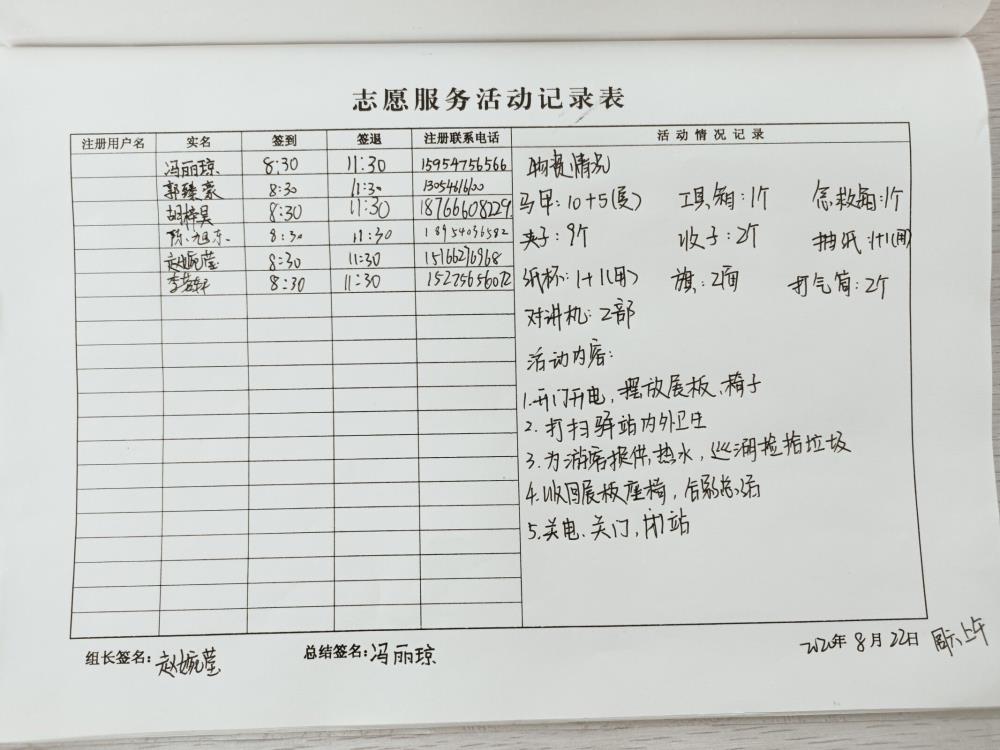 志愿服务活动记录表
注册用户名 实名 签到 签退 注册联系电话 活动情况记录
冯丽琼 8:30 11:30 15954756566
郭臻豪 8:30 11:30 13054616100
胡梓昊 8:30 11:30 18766608229
陈旭东 8:30 11:30 18954036582
赵婉莹 8:30 11:30 15166276968
8:30 11:30 15275656072
物资情况
马甲:10+5(废) 工具箱:1个 急救箱:1个
夹子:9个 收子:2个 抽纸:1+1(用)
纸杯:1+1(用) 旗:2面 打气筒:2个
对讲机:2部
活动内容:
1.开门开电,摆放展板、椅子
2.打扫驿站内外卫生
3.为游客提供热水,巡湖捡拾垃圾
4.收回展板座椅,合影总结
5.关电、关门,闭站
组长签名:赵婉莹 总结签名:冯丽琼
2020年8月22日 周六上午